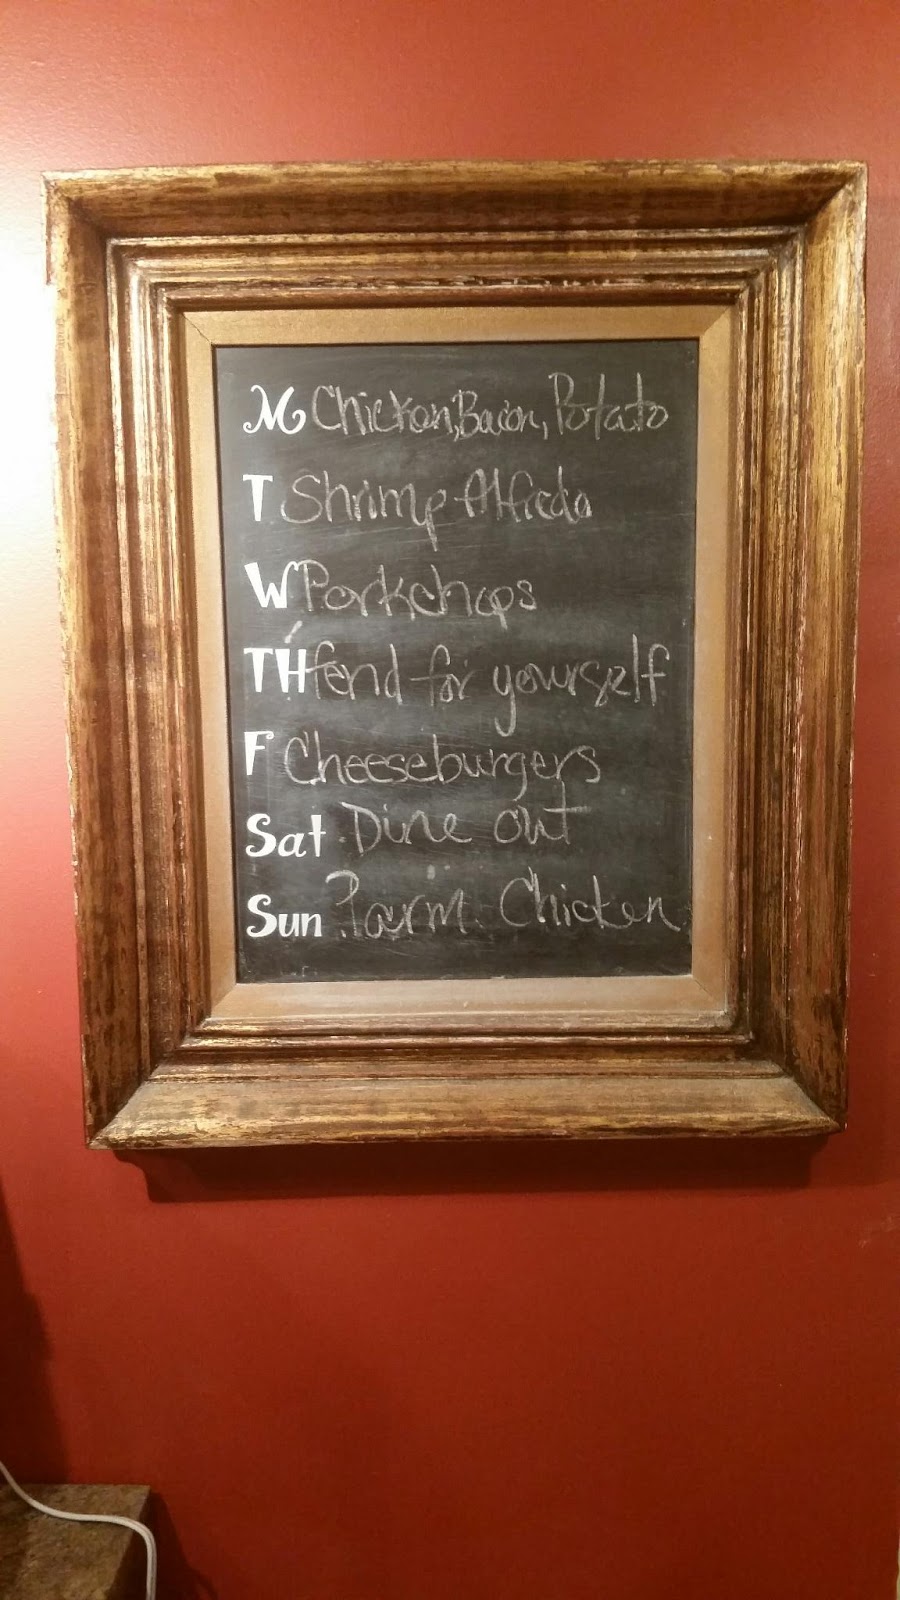 M Chicken, Bacon, Potato
T Shrimp Alfredo
W Porkchops
TH fend for yourself
F Cheeseburgers
Sat Dine out
Sun Parm. Chicken